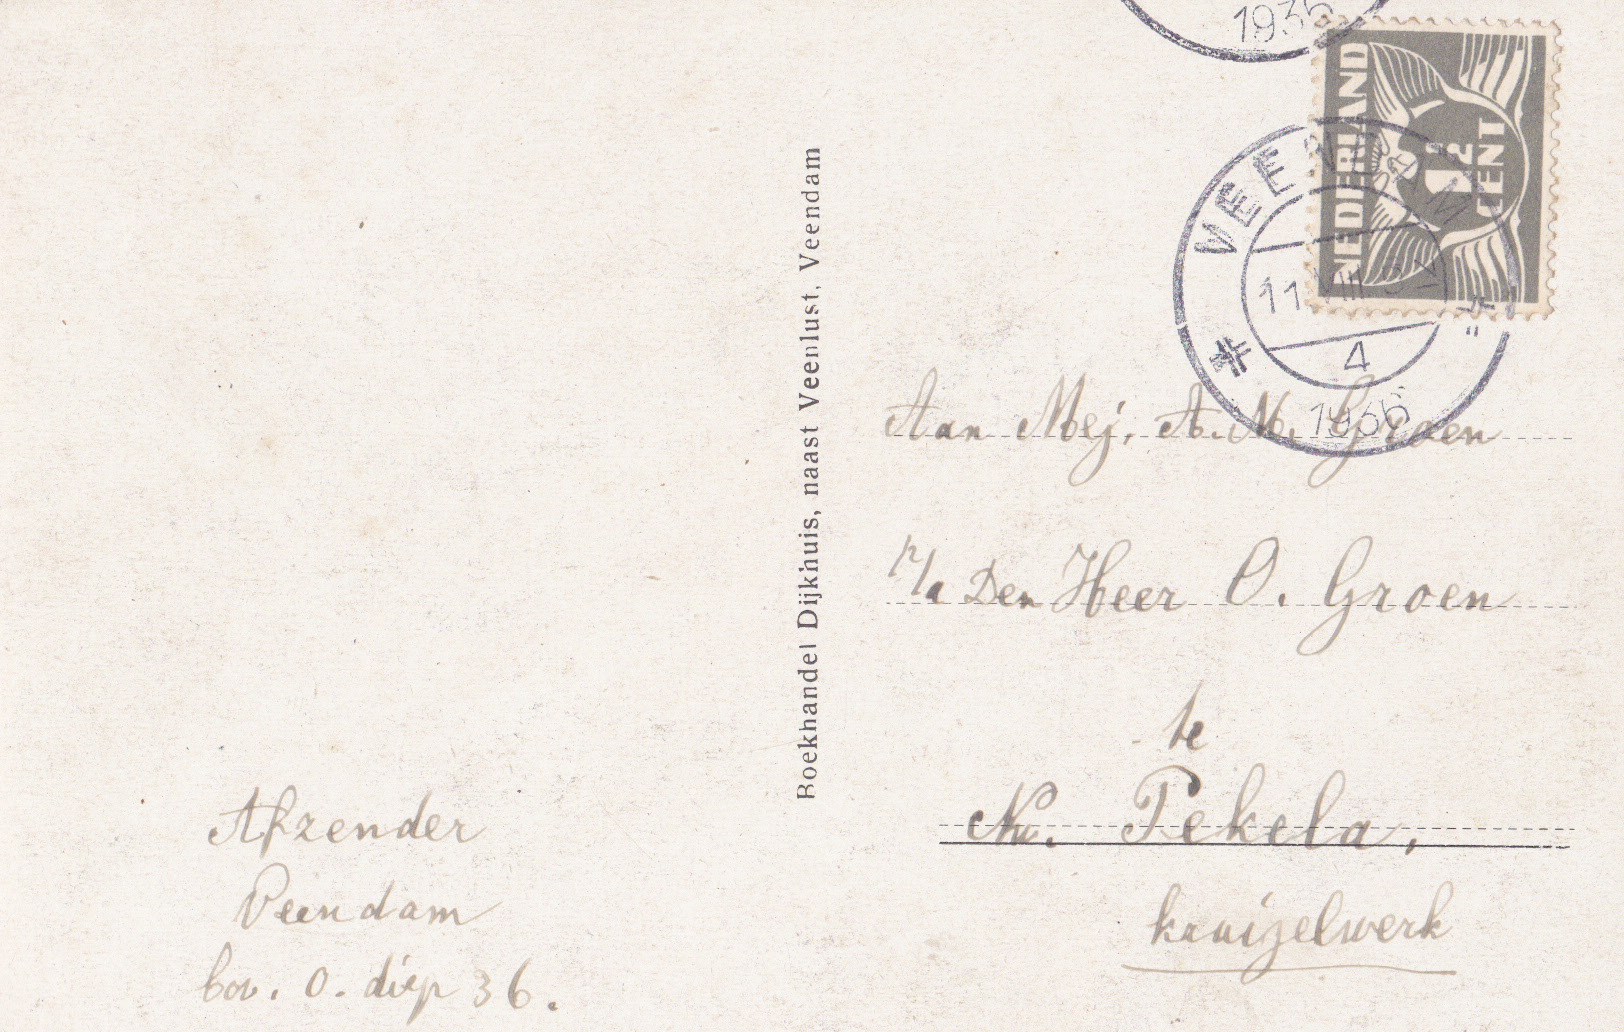 1936
NEDERLAND
1½
CENT
VEENDAM
11 VIII
4
1936
Boekhandel Dijkhuis, naast Veenlust, Veendam
Aan Mej. A. M. Groen
p/a Den Heer O. Groen
te
N. Pekela,
kruizelwerk
Afzender
Veendam
bov. O. diep 36.